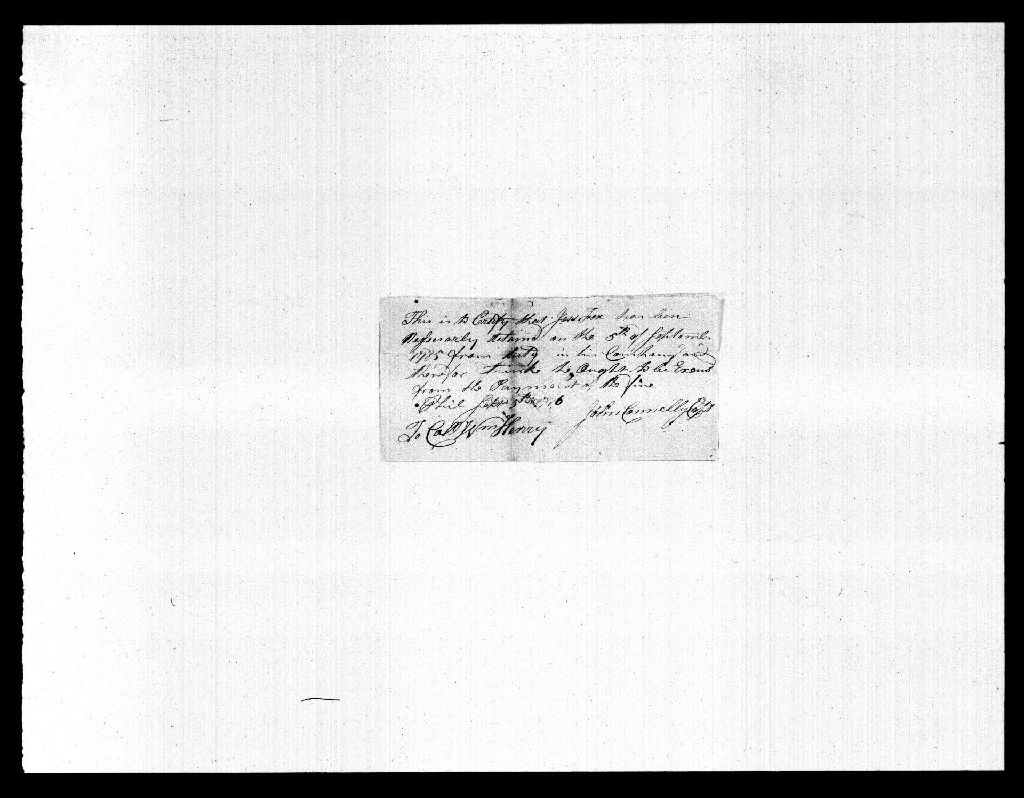 This is to Certify that Jesse Fox has been
Nessesarly detaind on the 5th of Septembr
1775 from duty in his Company and
therefor thinke he Ought to be Excusd
from the Payment of the fine
Phil Septr 5th 1776 John Connelly Capt
To Capt Wm Henry